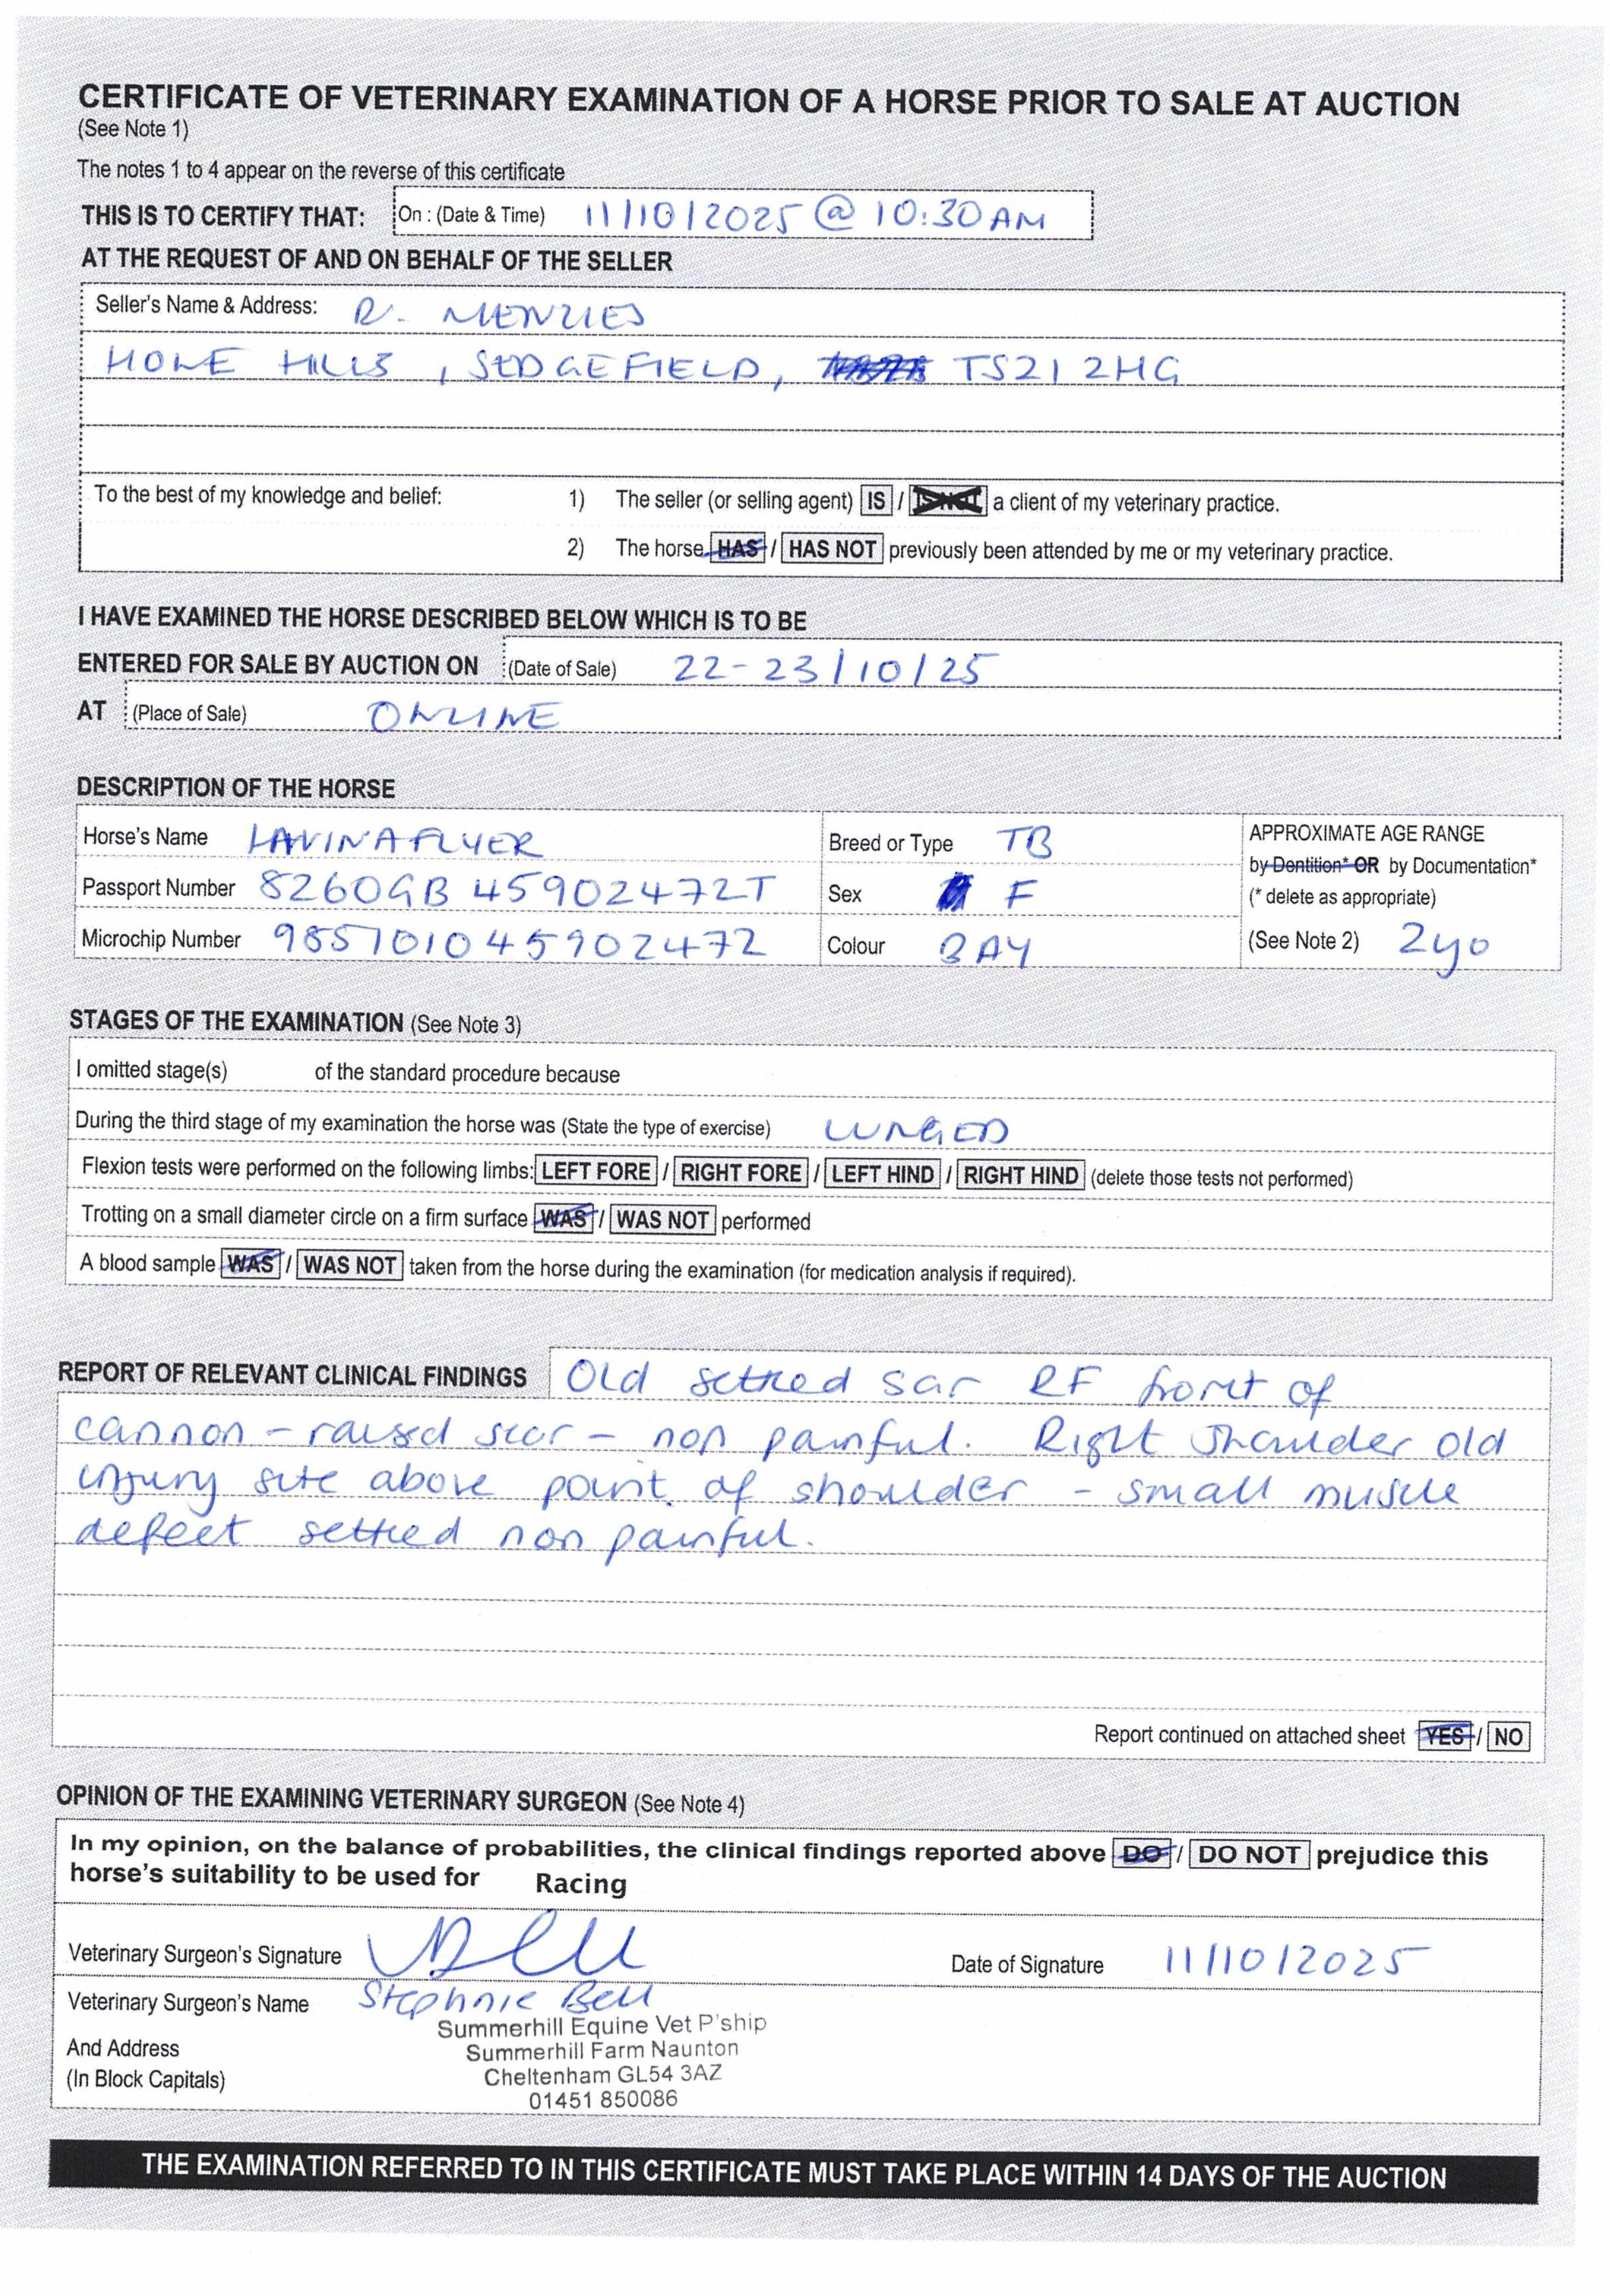 CERTIFICATE OF VETERINARY EXAMINATION OF A HORSE PRIOR TO SALE AT AUCTION
(See Note 1)
The notes 1 to 4 appear on the reverse of this certificate
THIS IS TO CERTIFY THAT: On : (Date & Time) 11/10/2025 @ 10:30AM
AT THE REQUEST OF AND ON BEHALF OF THE SELLER
Seller's Name & Address: R. MENZIES
HOLE HILLS, SEDGEFIELD, TS21 2HG
To the best of my knowledge and belief: 1) The seller (or selling agent) IS / IS NOT a client of my veterinary practice.
2) The horse HAS / HAS NOT previously been attended by me or my veterinary practice.
I HAVE EXAMINED THE HORSE DESCRIBED BELOW WHICH IS TO BE
ENTERED FOR SALE BY AUCTION ON (Date of Sale) 22-23/10/25
AT (Place of Sale) ONLINE
DESCRIPTION OF THE HORSE
Horse's Name LAVINAFLYER Breed or Type TB APPROXIMATE AGE RANGE
by Dentition* OR by Documentation*
Passport Number 8260GB 45902472T Sex F (* delete as appropriate)
Microchip Number 985101045902472 Colour BAY (See Note 2) 2yo
STAGES OF THE EXAMINATION (See Note 3)
I omitted stage(s) of the standard procedure because
During the third stage of my examination the horse was (State the type of exercise) LUNGED
Flexion tests were performed on the following limbs: LEFT FORE / RIGHT FORE / LEFT HIND / RIGHT HIND (delete those tests not performed)
Trotting on a small diameter circle on a firm surface WAS / WAS NOT performed
A blood sample WAS / WAS NOT taken from the horse during the examination (for medication analysis if required).
REPORT OF RELEVANT CLINICAL FINDINGS Old settled sar RF front of
cannon - raised scar - non painful. Right shoulder old
injury site above point of shoulder - small muscle
defect settled non painful.
Report continued on attached sheet YES / NO
OPINION OF THE EXAMINING VETERINARY SURGEON (See Note 4)
In my opinion, on the balance of probabilities, the clinical findings reported above DO / DO NOT prejudice this
horse's suitability to be used for Racing
Veterinary Surgeon's Signature Date of Signature 11/10/2025
Veterinary Surgeon's Name Stephnie Bell
Summerhill Equine Vet P'ship
And Address Summerhill Farm Naunton
(In Block Capitals) Cheltenham GL54 3AZ
01451 850086
THE EXAMINATION REFERRED TO IN THIS CERTIFICATE MUST TAKE PLACE WITHIN 14 DAYS OF THE AUCTION